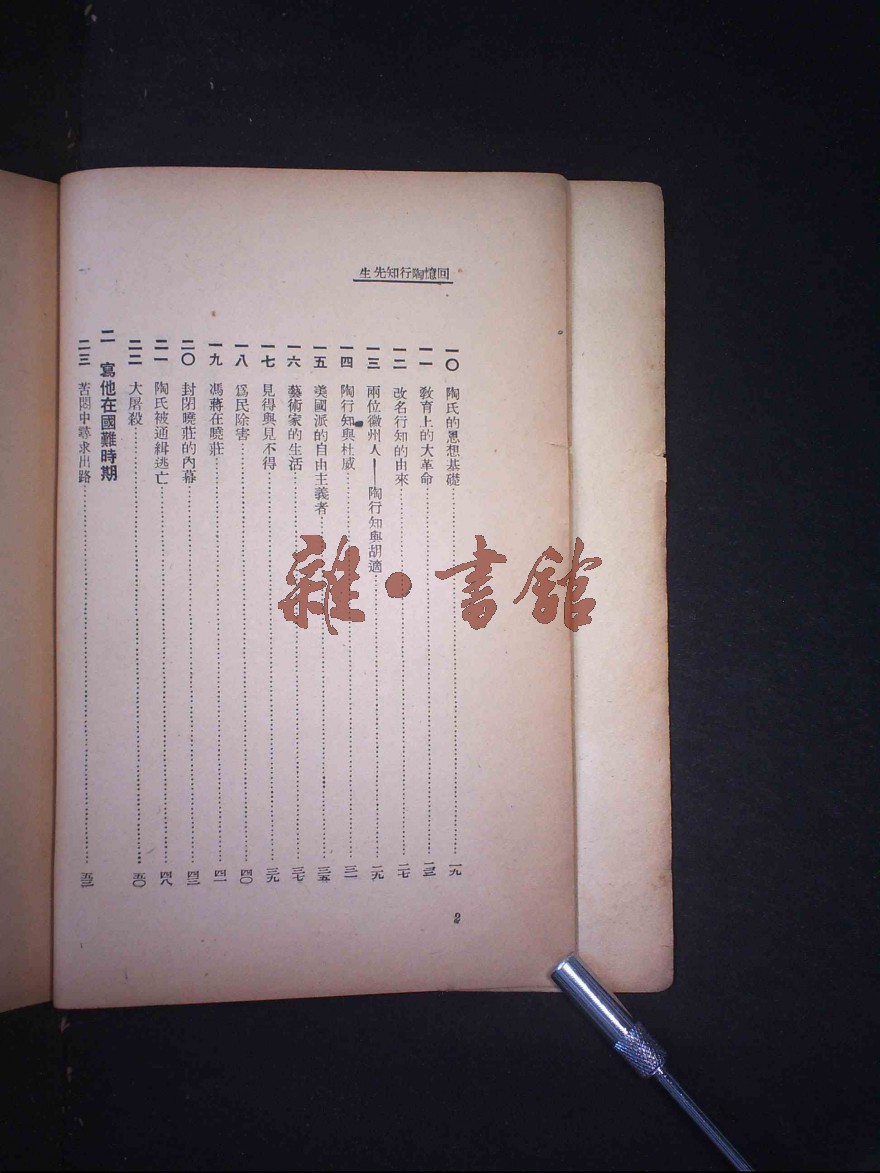 回憶陶行知先生
一〇 陶氏的思想基礎 一九
一一 敎育上的大革命 二三
一二 改名行知的由來 二七
一三 兩位徽州人——陶行知與胡適 二九
一四 陶行知與杜威 三一
一五 美國派的自由主義者 三五
一六 藝術家的生活 三七
一七 見得與見不得 三九
一八 爲民除害 四〇
一九 馮蔣在曉莊 四一
二〇 封閉曉莊的內幕 四三
二一 陶氏被通緝逃亡 四八
二二 大屠殺 五〇
二 寫他在國難時期
二三 苦悶中尋求出路 五三
2
雜·書館